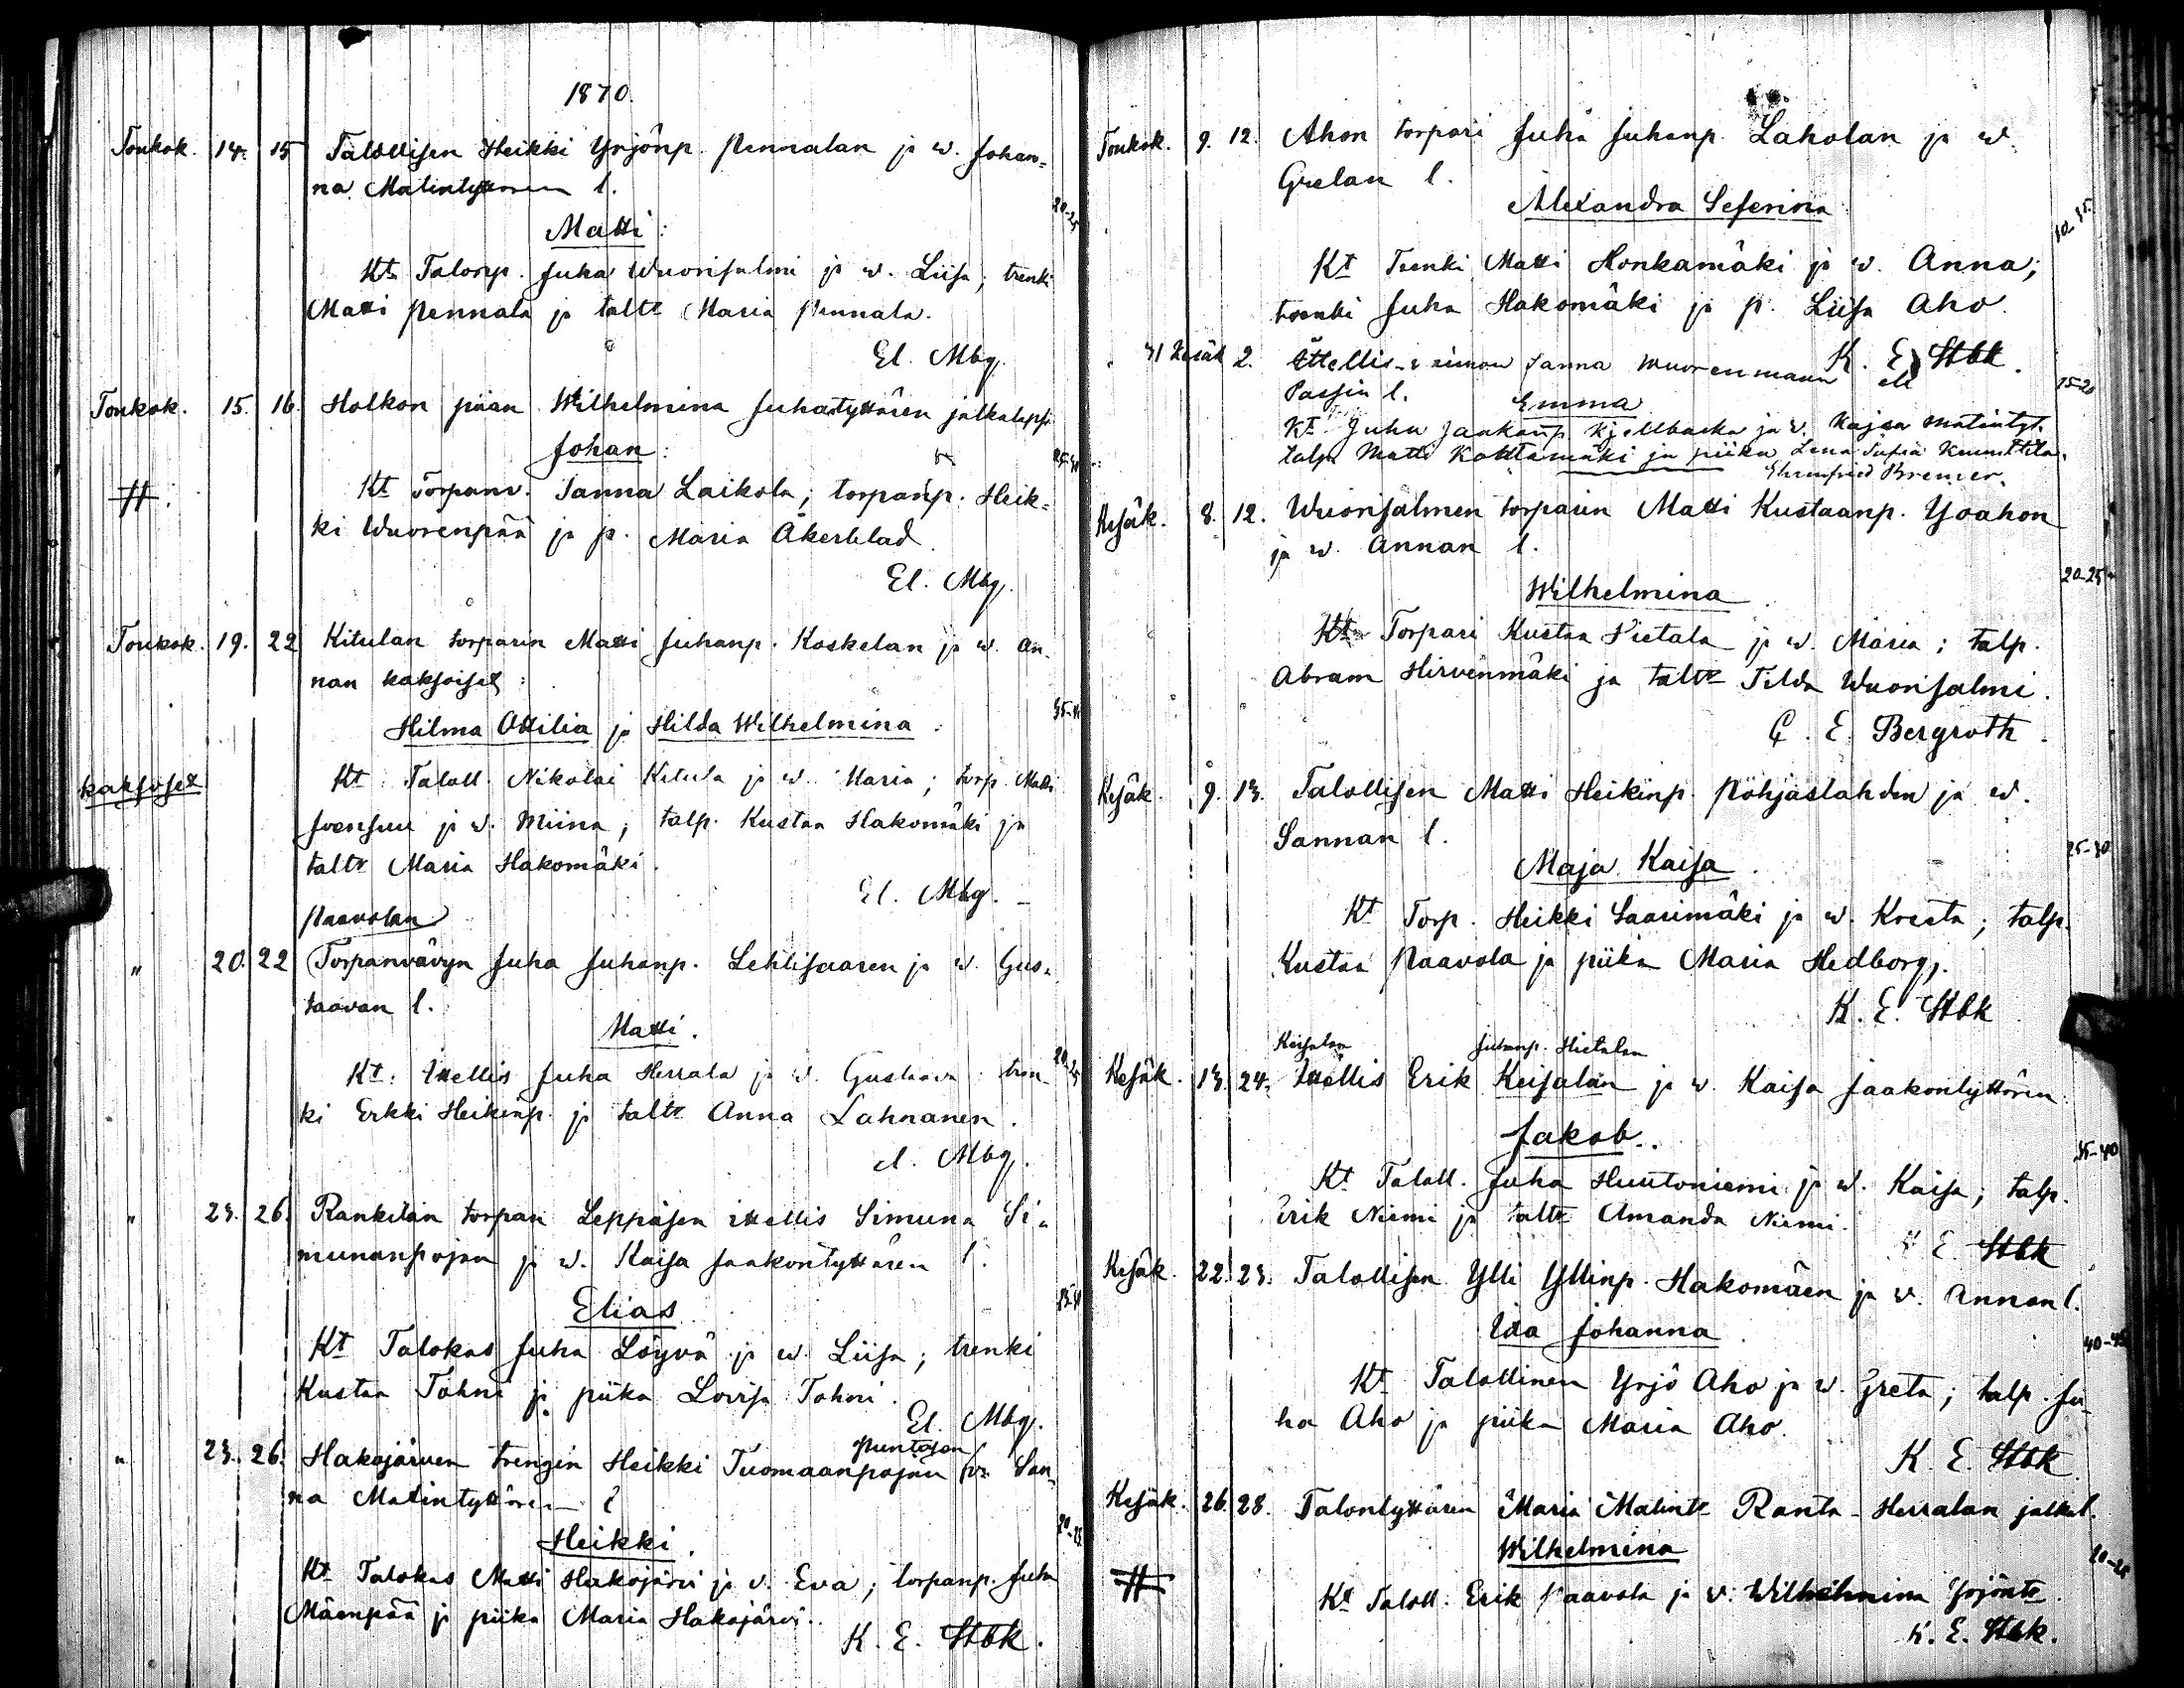 1870.
Toukok. 14. 15 Talollisen Heikki Yrjönp. Pennalan ja w. Johan=
na Matintyttären l.
20-25
Matti:
Kt Talonp. Juha Wuorisalmi ja w. Liisa; trenki
Matti Pennala ja taltr Maria Pennala.
El. Mbg.
Toukok. 15. 16. Holkon piian Wilhelmina Juhantyttären jalkalapsi
Johan:
Kt Torpanv. Sanna Laikola; torpanp. Heik=
ki Wuorenpää ja p. Maria Åkerblad.
El. Mbg.
Toukok. 19. 22 Kitulan torparin Matti Juhanp. Koskelan ja w. An-
nan kaksoiset:
35-40
Hilma Ottilia ja Hilda Wilhelmina:
kaksoset
Kt Taloll. Nikolai Kitula ja w. Maria; torp. Matti
Joensuu ja w. Miina; talp. Kustaa Hakomäki ja
taltr Maria Hakomäki.
El. Mbg.
Paavolan
" 20. 22 Torpanvävyn Juha Juhanp. Lehtisaaren ja w. Gus-
taavan l.
Matti.
20-25
Kt: Itellis Juha Herrala ja w. Gustava: tren-
ki Erkki Heikinp. ja taltr Anna Lahnanen.
El. Mbg.
" 23. 26. Rankilan torpan Leppäsen itellis Simuna Si-
munanpojan ja w. Kaisa Jaakontyttären l.
Elias
Kt Talokas Juha Löyvä ja w. Liisa; trenki
Kustaa Tohni ja piika Lovisa Tohni.
El. Mbg.
Puntasen
" 23. 26. Hakojärven trengin Heikki Tuomaanpojan ja w. San-
na Matintyttären l
20-25
Heikki.
Kt Talokas Matti Hakojärvi ja v. Eva; torpanp. Juha
Mäenpää ja piika Maria Hakojärvi.
K. E. Stbk.
Toukok. 9. 12. Ahon torpari Juha Juhanp. Laholan ja w.
Gretan l.
Alexandra Seferina
Kt Trenki Matti Honkamäki ja w. Anna;
trenki Juha Hakomäki ja p. Liisa Aho.
K. E. Stbk.
31 Kesäk 2. Ittellis- Sanna Wuorenmaan eli
Passin l.
15-20
Emma
Kt Juha Jaakonp. Kjellbacka ja v. Kajsa Matintyt.
talp. Matti Kottamäki ja piika Lena Sofia
Ehrnfried Bremer.
Kesäk. 8. 12. Wuorisalmen torparin Matti Kustaanp. Yoahon
ja w. Annan l.
20-25
Wilhelmina
Kt Torpari Kustaa Pietala ja w. Maria; talp.
Abram Hirvenmäki ja taltr Tilda Wuorisalmi.
C. E. Bergroth.
Kesäk. 9. 13. Talollisen Matti Heikinp. Pohjaslahden ja w.
Sannan l.
25-30
Maja Kaisa
Kt Torp. Heikki Saarimäki ja w. Kreeta; talp.
Kustaa Paavola ja piika Maria Hedborg.
K. E. Stbk
Keisalan Juhanp. Hietalan
Kesäk. 13. 24. Itellis Erik Keisalan ja w. Kaisa Jaakontyttären:
Jakob.
35-40
Kt Taloll. Juha Huutoniemi ja w. Kaisa; talp.
Erik Niemi ja taltr Amanda Niemi.
K. E. Stbk
Kesäk. 22. 23. Talollisen Ylli Yllinp. Hakomäen ja w. Annan l.
Ida Johanna
40-45
Kt Talollinen Yrjö Aho ja w. Greta; talp. Ju-
ha Aho ja piika Maria Aho.
K. E. Stbk.
Kesäk. 26. 28. Talontyttären Maria Matintr Ranta-Herralan jalkal.
Wilhelmina
Kt Taloll. Erik Paavola ja v. Wilhelmina Yrjöntr.
K. E. Stbk.